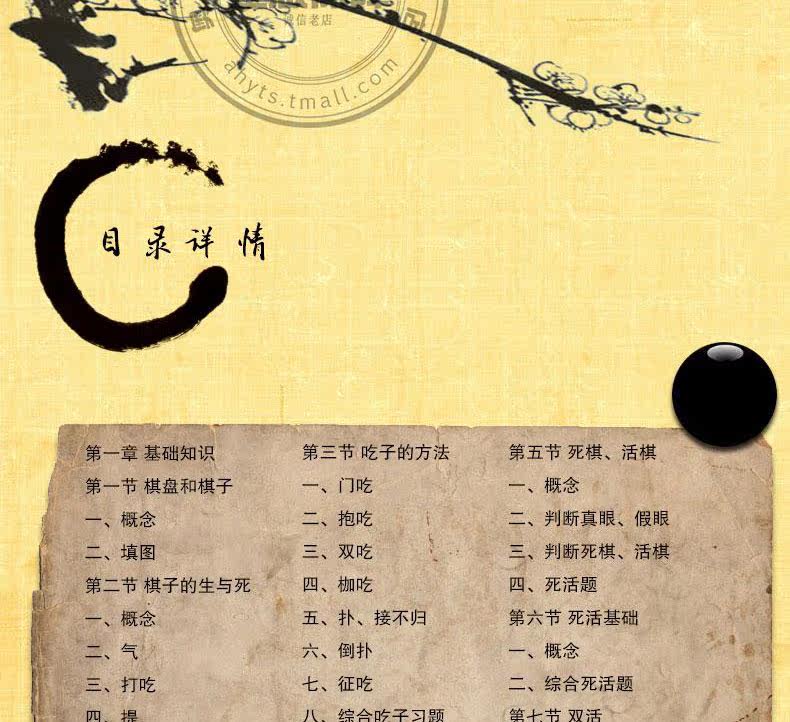 诚信老店
ahyts.tmall.com
目录详情
第一章 基础知识
第一节 棋盘和棋子
一、概念
二、填图
第二节 棋子的生与死
一、概念
二、气
三、打吃
四、提
第三节 吃子的方法
一、门吃
二、抱吃
三、双吃
四、枷吃
五、扑、接不归
六、倒扑
七、征吃
八、综合吃子习题
第五节 死棋、活棋
一、概念
二、判断真眼、假眼
三、判断死棋、活棋
四、死活题
第六节 死活基础
一、概念
二、综合死活题
第七节 双活